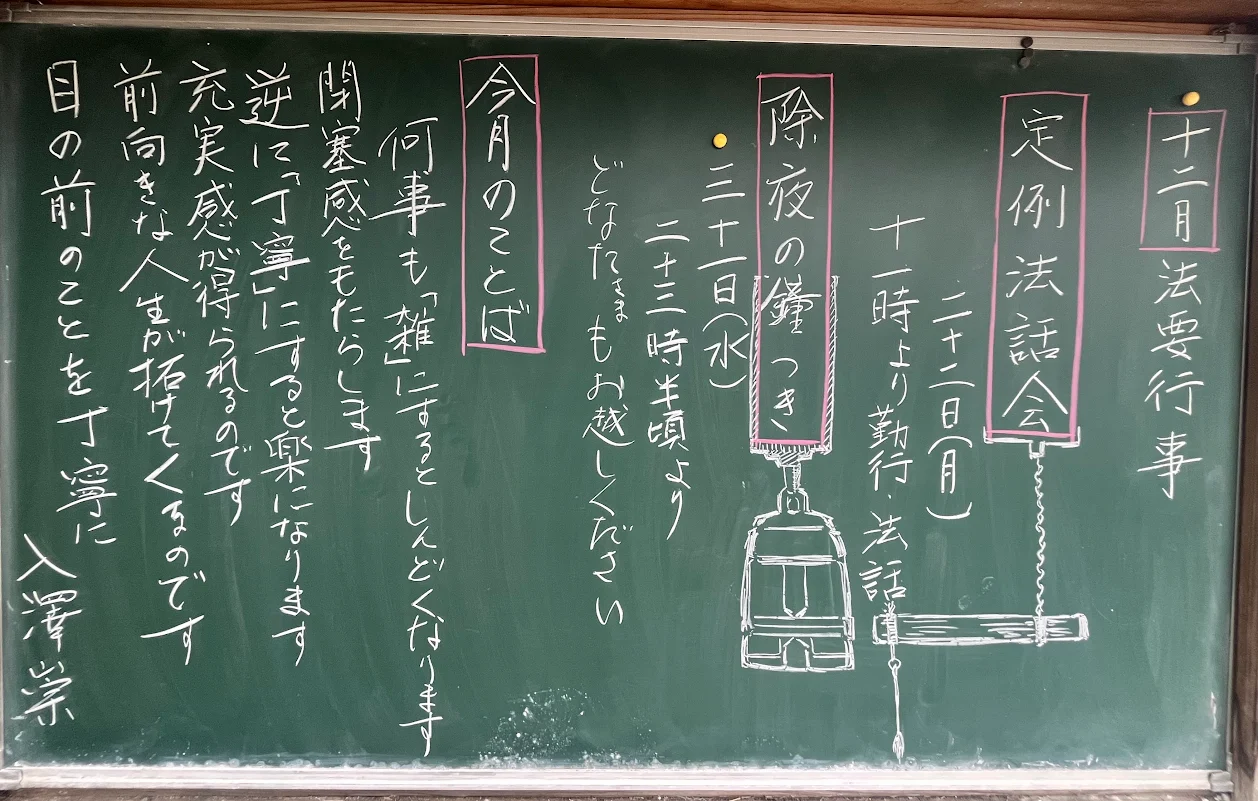 十二月 法要行事
定例法話会
二十二日(月)
十一時より 勤行・法話
除夜の鐘つき
三十一日(水)
二十三時半頃より
どなたさまもお越しください
今月のことば
何事も「雑」にするとしんどくなります
閉塞感をもたらします
逆に「丁寧」にすると楽になります
充実感が得られるのです
前向きな人生が拓けてくるのです
目の前のことを丁寧に
入澤崇